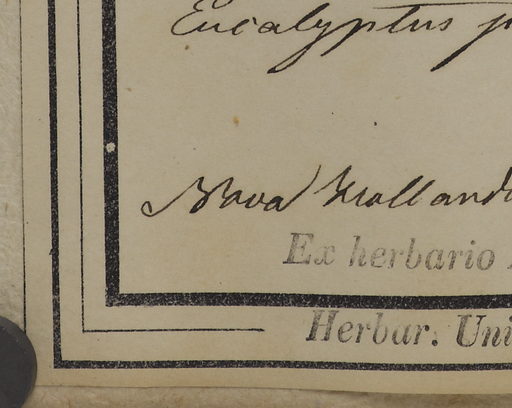 Eucalyptus p
Nova Hollandi
Ex herbario
Herbar. Uni